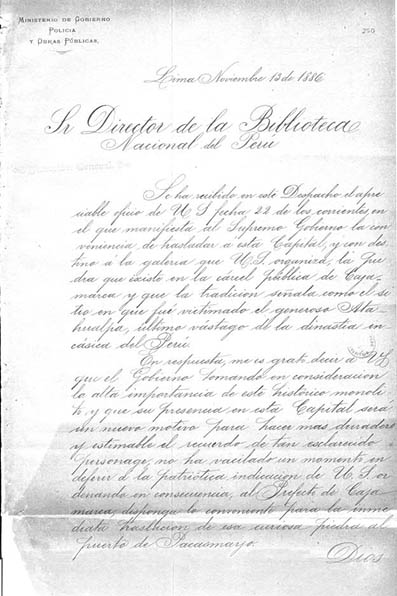 MINISTERIO DE GOBIERNO
POLICIA
Y OBRAS PÚBLICAS.
250
Lima Noviembre 13 de 1886
Sr Director de la Biblioteca
Nacional del Perú
Se ha recibido en este Despacho el apre-
ciable oficio de U S fecha 22 de los corrientes, en
el que manifiesta al Supremo Gobierno la con-
veniencia de trasladar á esta Capital, y con des-
tino á la galeria que U.S. organiza, la Pie-
dra que existe en la cárcel pública de Caja-
marca y que la tradicion señala como el si-
tio en que fué victimado el generoso Ata-
hualpa, último vástago de la dinastia in-
cásica del Perú.
En respuesta, me es grato decir á
que el Gobierno tomando en consideracion
la alta importancia de este histórico monoli-
to, y que su presencia en esta Capital será
un nuevo motivo para hacer mas duradero
y estimable el recuerdo de tan esclarecido
personage, no ha vacilado un momento en
deferir á la patriótica indicacion de U. S. or
denando en consecuencia, al Prefecto de Caja-
marca, disponga lo conveniente para la inme
diata traslacion de esa curiosa piedra al
puerto de Pacasmayo.
Dios